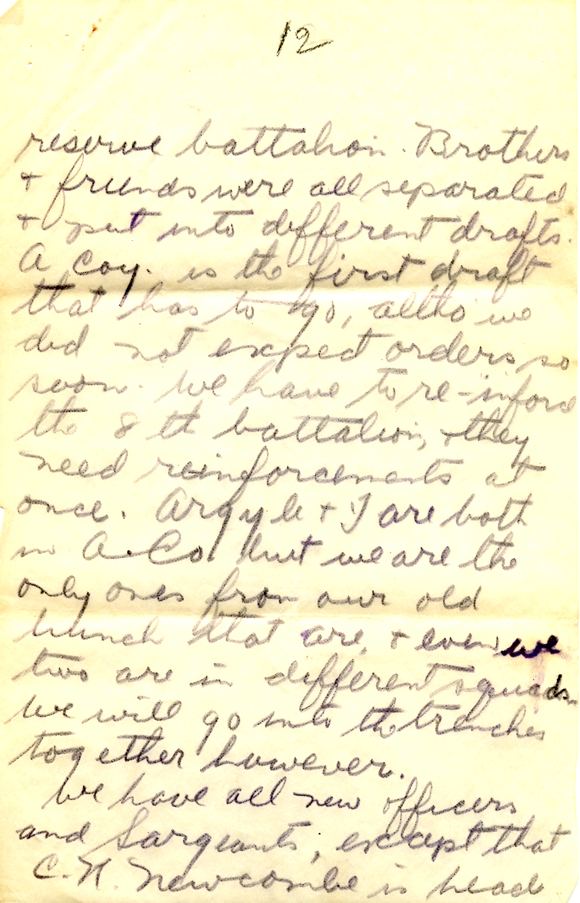 12
reserve battalion. Brothers
+ friends were all separated
+ put into different drafts.
A Coy. is the first draft
that has to go, altho we
did not expect orders so
soon. We have to re-inforce
the 8th battalion, + they
need reinforcements at
once. Argyle + I are both
in A.Co. but we are the
only ones from our old
bunch that are, + even we
two are in different squads.
We will go into the trenches
together however.
We have all new officers
and Sargeants, except that
C.N. Newcombe is head